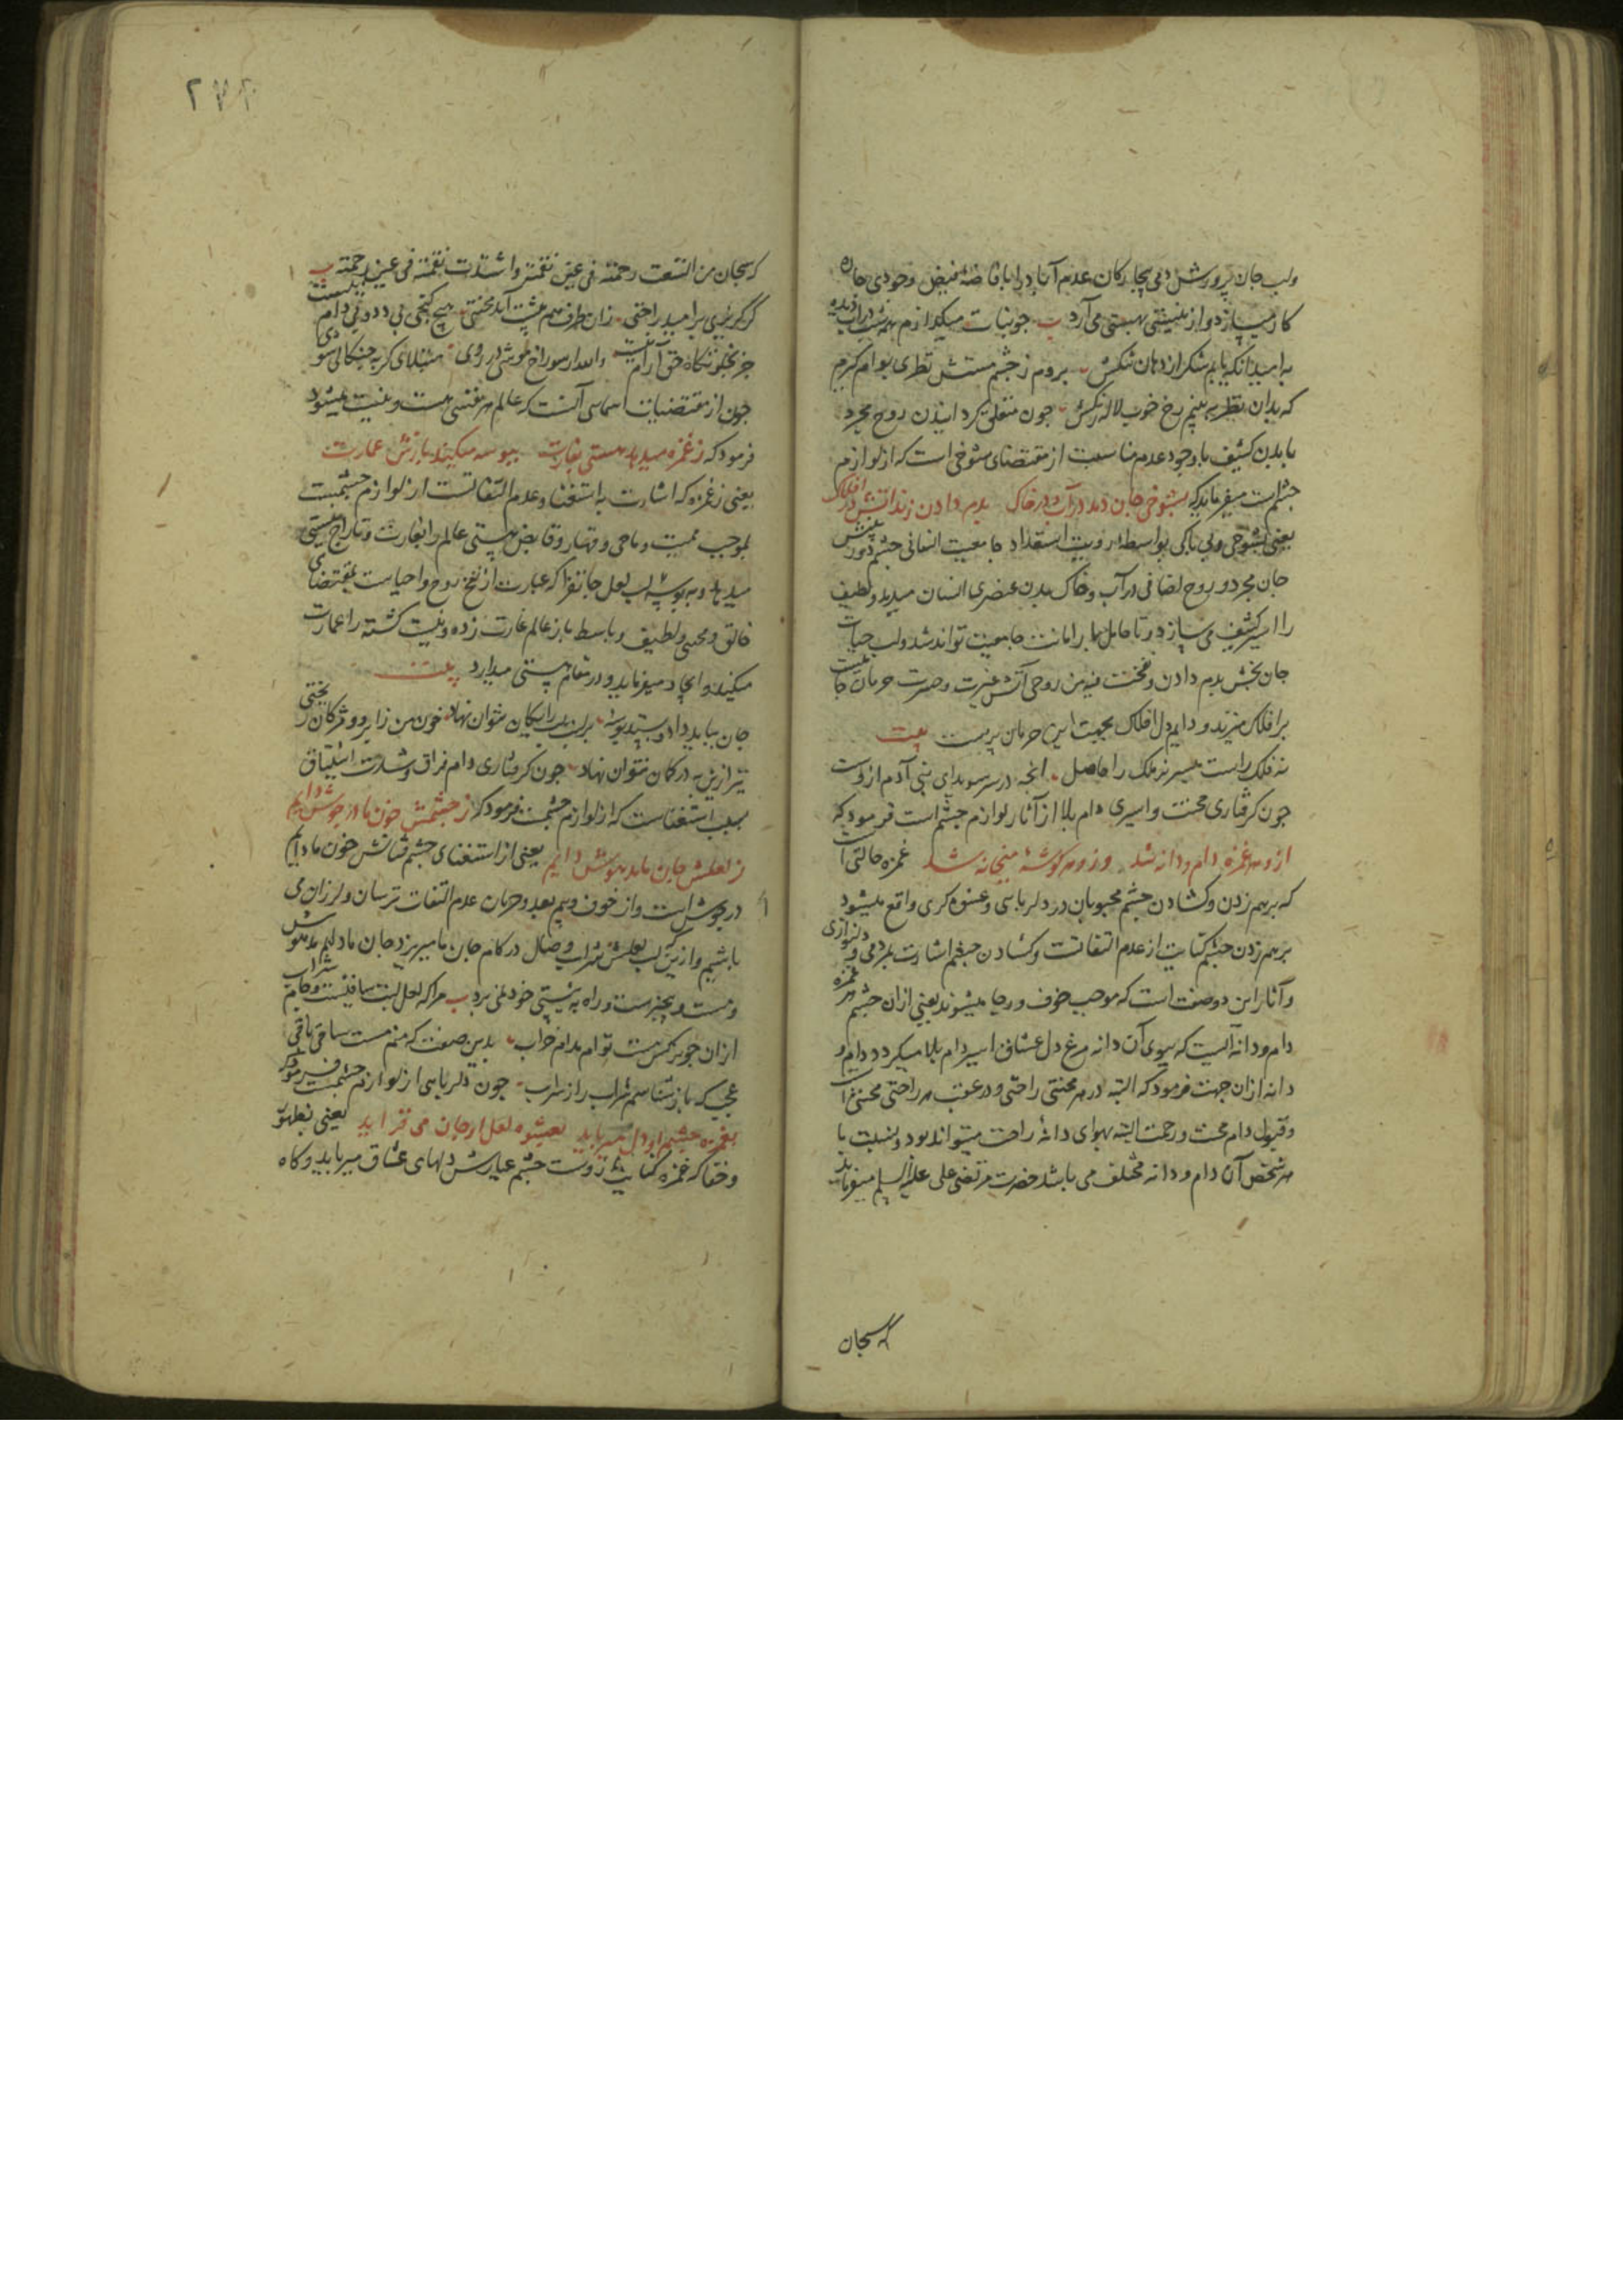 ولب جان پرورش دمی بیچارکان عدم آباد را بافاضهٔ فیض وجودی چاره
کار میسازد و از نیستی بهستی می آرد ب جو نبات میگدازم همه شب در آب دیده
به امید آنکه یابم شکر از دهان شکرش بروم ز چشم مستش نظری بوام گیرم
که بدان نظر ببینم رخ خوب لاله رنگش جون متعلق کردانیدن روح مجرد
با بدن کثیف با وجود عدم مناسبت از مقتضای شوخی است که از لوازم
چشم است میفرماید که بشوخی جان دمد در آب و در خاک بدم دادن زند آتش در افلاک
یعنی بشوخی و بی باکی بواسطهٔ رویت استعداد جامعیت انسانی چشم دوربینش
جان مجرد و روح اضافی در آب و خاک بدن عنصری انسان میدمد و لطیف
را اسیر کثیف می سازد تا حامل بار امانت جامعیت تواند شد و لب حیات
جان بخش بدم دادن و نفخت فیه من روحی آتش غیرت و حسرت حرمان جامعیت
بر افلاک میزند و دایم دل افلاک بجهت این حرمان پر بیت
نه فلک راست میسر نه ملک را حاصل انجه در سر سویدای بنی آدم ازوست
جون کرفتاری محنت و اسیری دام بلا از آثار لوازم چشم است فرمود که
ازو هر غمزه دام و دانه شد وزو هر کوشهٔ میخانه شد غمزه حالتی است
که بر هم زدن و کشادن چشم محبوبان در دلربایی و عشوه کری واقع میشود
بر هم زدن چشم کنایت از عدم التفاتست و کشادن چشم اشارت بمردمی و دلنوازی
و آثار این دو صفت است که موجب خوف و رجا میشوند یعنی از ان چشم هر غمزه
دام و دانه ایست که بسوی آن دانه مرغ دل عشاق اسیر دام بلا میکردد و دام و
دانه از ان جهت فرمود که البته در هر محنتی راحتی و در عقب هر راحتی محنتی است
و قبول دام محنت و زحمت البته بهوای دانهٔ راحت میتواند بود و نسبت با
هر شخص آن دام و دانه مختلف می باشد حضرت مرتضی علی علیه السلم میفرماید
که سبحان
۲۷۲
که سبحان من اتسعت رحمته فی عین نقمته و اشتدت نقمته فی عین رحمته ب
کر گریزی بر امید راحتی زان طرف هم پیشت آید محنتی هیچ کنجی بی دد و بی دام نیست
جز بخلوتگاه حق آرام نیست والله ار سوراخ موشی در روی مبتلای کربه چنگالی شوی
جون از مقتضیات اسمایی آنست که عالم هر نفسی هست و نیست میشود
فرمود که ز غمزه میدهد هستی بغارت ببوسه میکند بازش عمارت
یعنی ز غمزه که اشارت به استغنا و عدم التفاتست از لوازم چشمست
بموجب ممیت و ماحی و قهار و قابض هستی عالم را بغارت و تاراج نیستی
میدهد و به بوسهٔ لب لعل جانفزا که عبارت از نفخ روح و احیاست بمقتضای
خالق و محیی و لطیف و باسط باز عالم غارت زده و نیست کشته را عمارت
میکند و ایجاد میفرماید و در مقام هستی میدارد بیت
جان بباید داد و بستد بوسهٔ بر لب رایکان نتوان نهاد خون من ز ابرو و مژکان ریختی
تیر ازین به در کمان نتوان نهاد جون کرفتاری دام فراق و شدت اشتیاق
بسبب استغناست که از لوازم چشمست فرمود که ز چشمش خون ما در جوش دایم
ز لعلش جان ما مدهوش دایم یعنی از استغنای چشم فتانش خون ما دایم
در جوش است و از خوف و بیم بعد و حرمان عدم التفات ترسان و لرزان می
باشیم و ازین که لب لعلش شراب وصال در کام جان ما میریزد جان ما دایم مدهوش
و مست و بیخبرست و راه به هستی خود نمی برد ب مرا که لعل لبت ساقیست و جام شراب
از ان جو نرکس مست توام مدام خراب بدین صفت که منم مست ساقی باقی
عجب که باز شناسم شراب را ز سراب جون دلربایی از لوازم چشمست فرمود که
بغمزه چشم او دل میرباید بعشوه لعل او جان می فزاید یعنی بظهور
و خفا که غمزه کنایت ازوست چشم عیارش دلهای عشاق میرباید و کاه